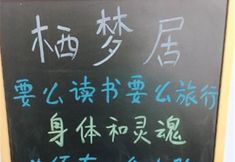 栖梦居
要么读书要么旅行
身体和灵魂